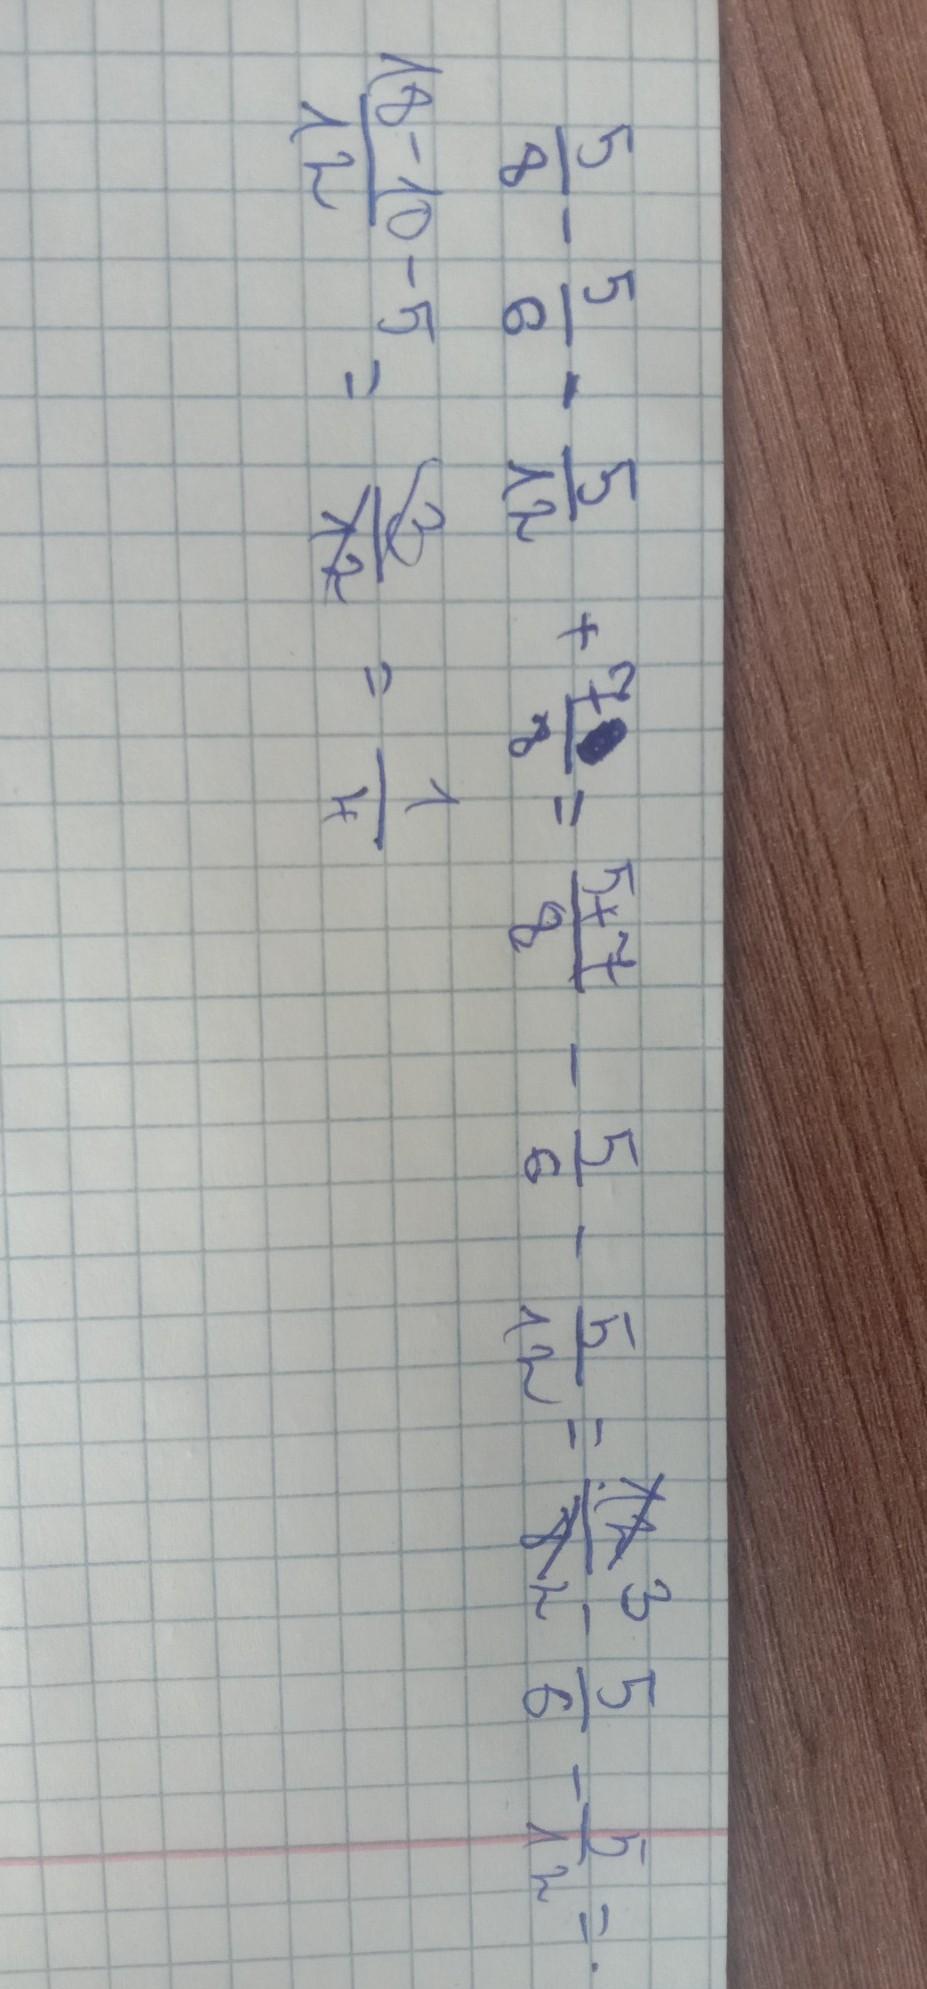 5/8 - 5/6 - 5/12 + 7/8 = 5+7/8 - 5/6 - 5/12 = 12/8 3/2 - 5/6 - 5/12 =
18-10-5/12 = 3/12 = 1/4